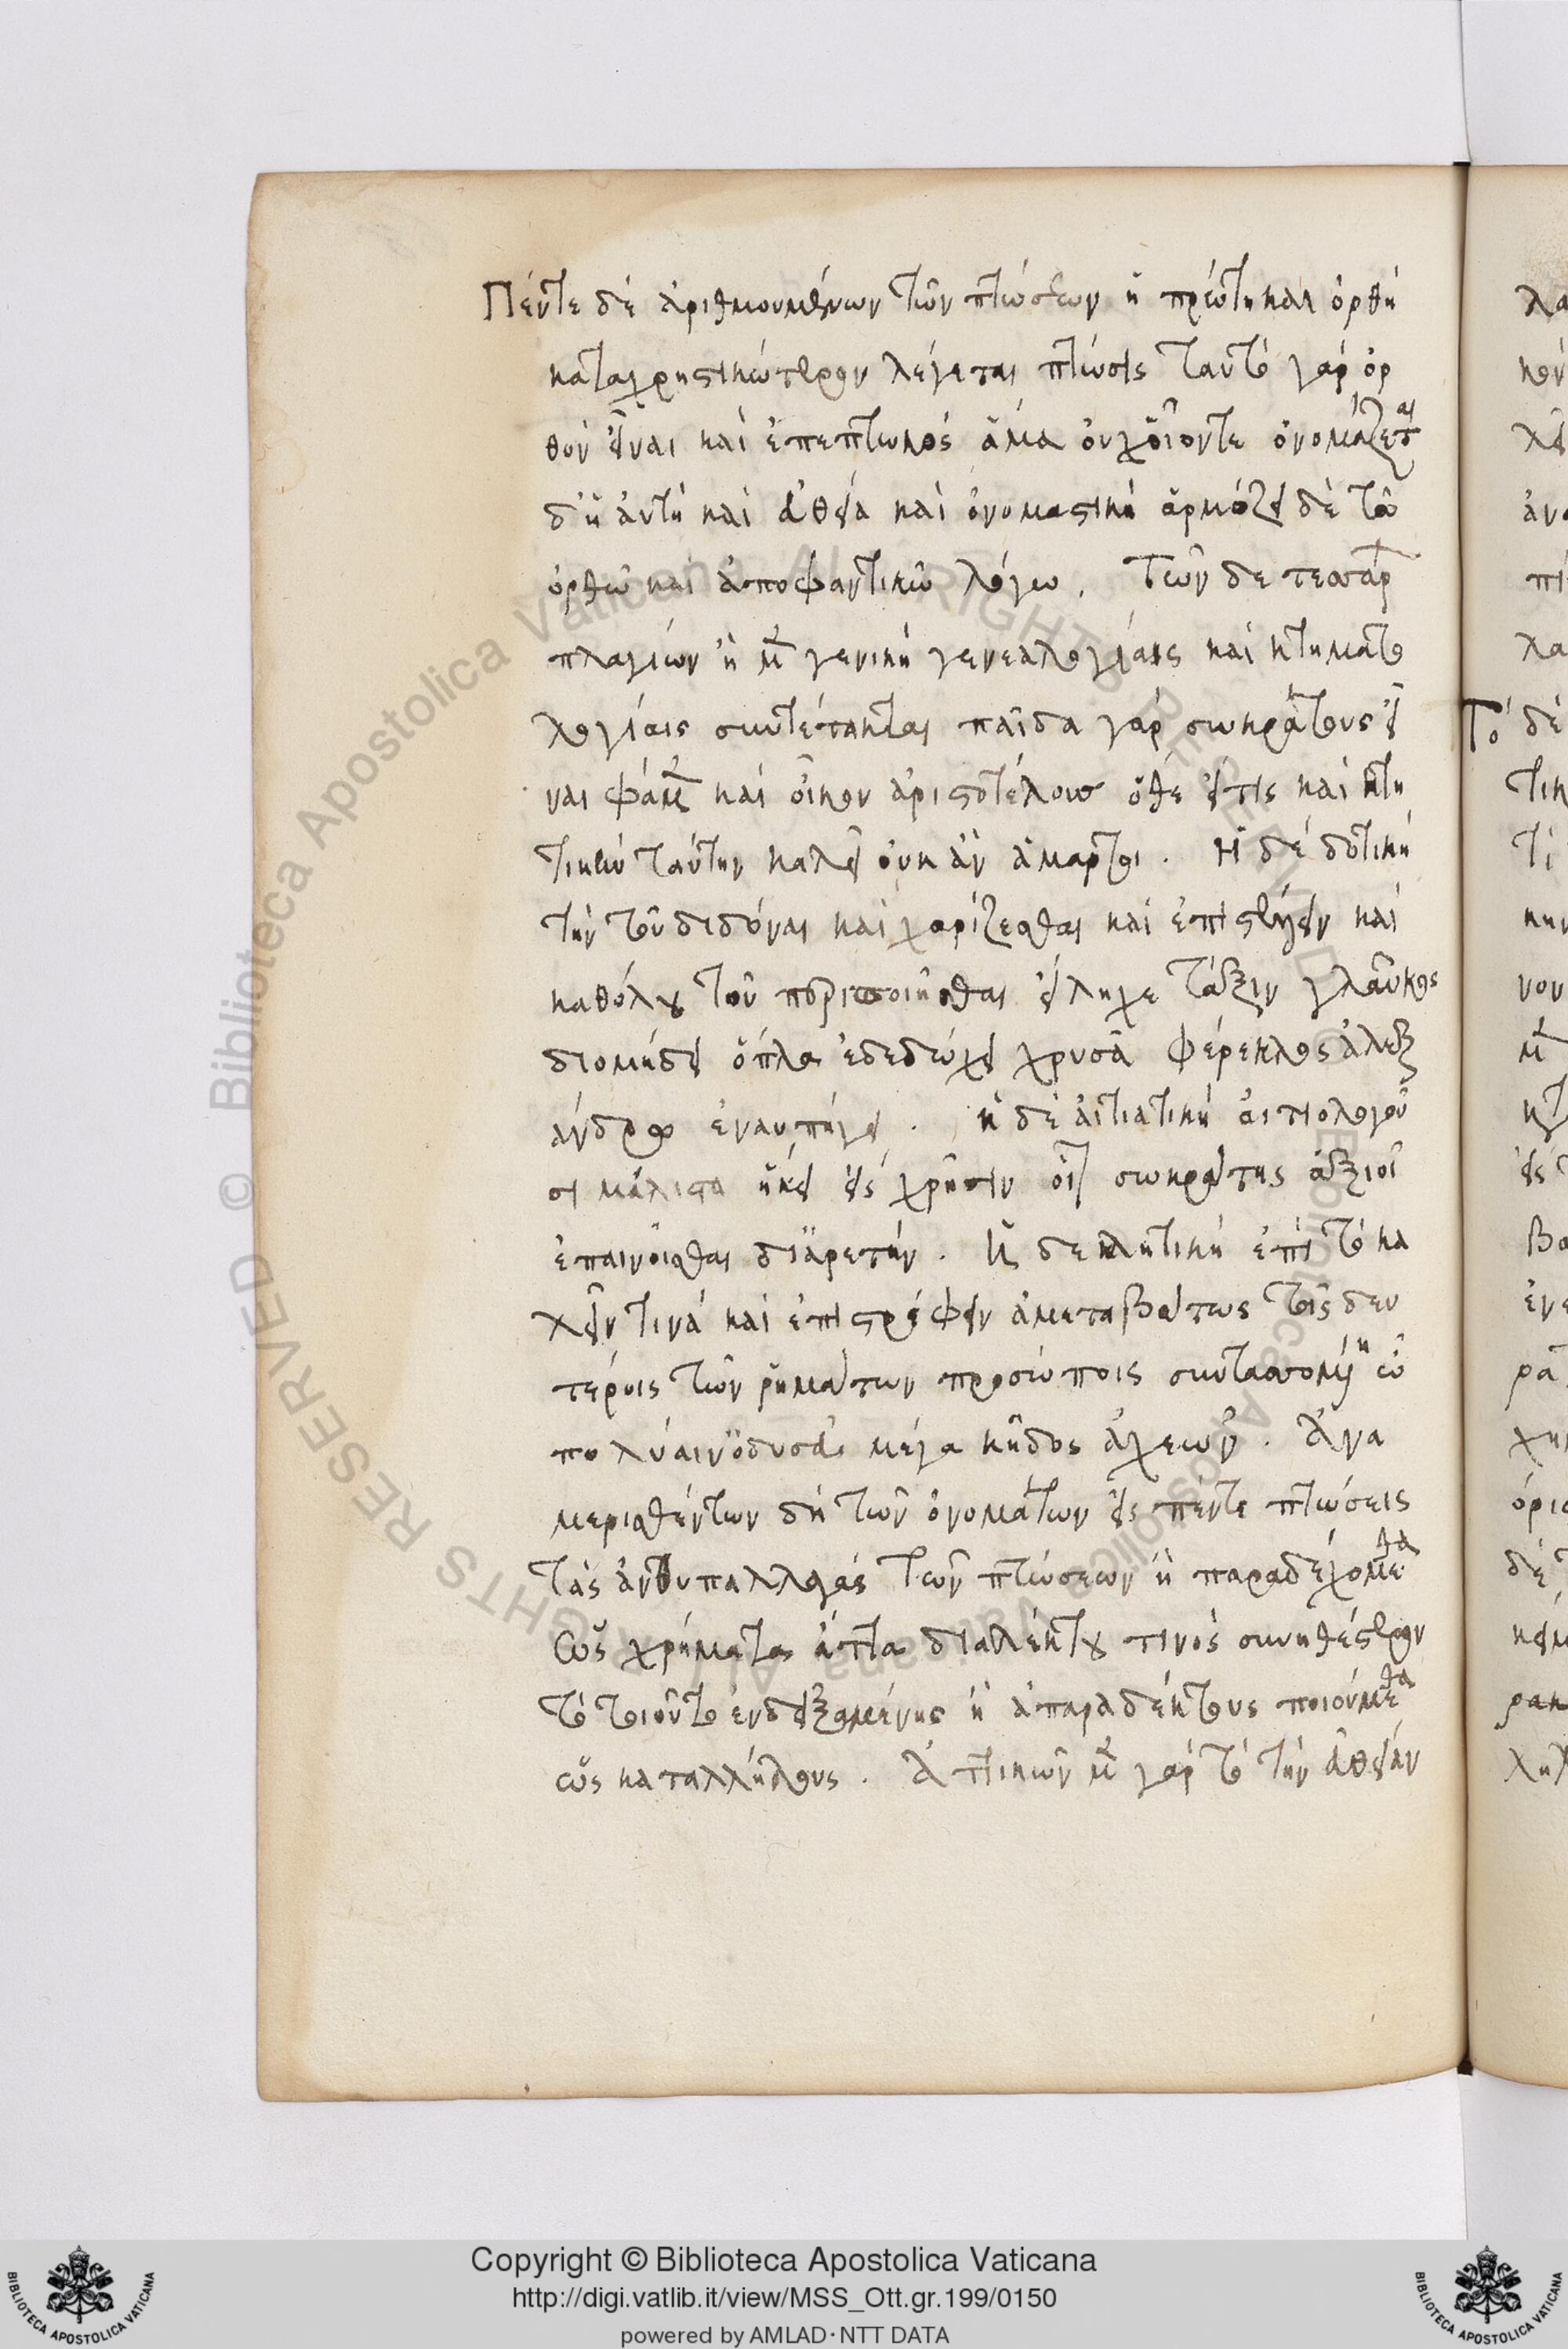 Πέντε δὲ ἀριθμουμένων τῶν πτώσεων ἡ πρώτη και ὀρθὴ
καταχρηστικώτερον λέγεται πτῶσις ταυτὸ γὰρ ὀρ
θὸν εἶναι καὶ ἐπεπτωκὸς ἅμα ὀυχοἷοντε ὀνομάζεται
δ' ἡ ἀυτὴ καὶ ἐυθεῖα καὶ ὀνομαστικὴ ἁρμόζει δὲ τῶ
ὀρθῶ καὶ ἀποφαντικῶ λόγω. Τῶν δε τεσσάρ
πλαγίων ἡ μὲν γενικὴ γενεαλογίαις καὶ κτηματο
λογίαις συντέτακται παῖδα γὰρ σωκράτους εἶ
ναι φάμὲν καὶ οἶκον ἀριστοτέλους ὅθέ εἴτις καὶ κτη
τικὴν ταύτην καλεῖ ὀυκ ἂν ἁμάρτοι. Ἡ δὲ δοτικὴ
τὴν τοῦ διδόναι καὶ χαρίζεσθαι καὶ ἐπιστέλλειν καὶ
καθόλου τοῦ περιποιῆσθαι εἴληχε τάξιν γλαῦκος
διομήδει ὅπλα ἐδεδώχει χρυσᾶ φέρεκλος ἀλεξ
άνδρω ἐναυπήγει. ἡ δὲ ἀιτιατικὴ ἀιτιολογοῦ
σι μάλιστα ἥκει εἰς χρῆσιν οἷ σωκράτης ἀξιοῖ
ἐπαινοισθαι δι ἀρετήν. Ἡ δε κλητικὴ ἐπὶ τὸ κα
λεῖν τινὰ καὶ ἐπιστρέφειν ἀμεταβάτως τοῖς δευ
τέροις τῶν ῥημάτων προσώποις συντασσομένη ὦ
πολύαιν' ὀδυσεῦ μέγα κῆδος ἀχεῶν. Ἀνα
μερισθέντων δὴ τῶν ὀνομάτων εἰς πέντε πτώσεις
τὰς ἀνθυπαλλαγὰς τῶν πτώσεων ἢ παραδεχόμεθα
ὡς χρήματα ἄττα διαλέκτου τινὸς συνηθέστερον
τὸ τοιοῦτο ἐνδειξαμένης ἢ ἀπαραδέκτους ποιούμεθα
ὡς καταλλήλους. Ἀττικῶν μὲν γὰρ τὸ τὴν ἐυθεῖαν
Copyright © Biblioteca Apostolica Vaticana
http://digi.vatlib.it/view/MSS_Ott.gr.199/0150
powered by AMLAD·NTT DATA